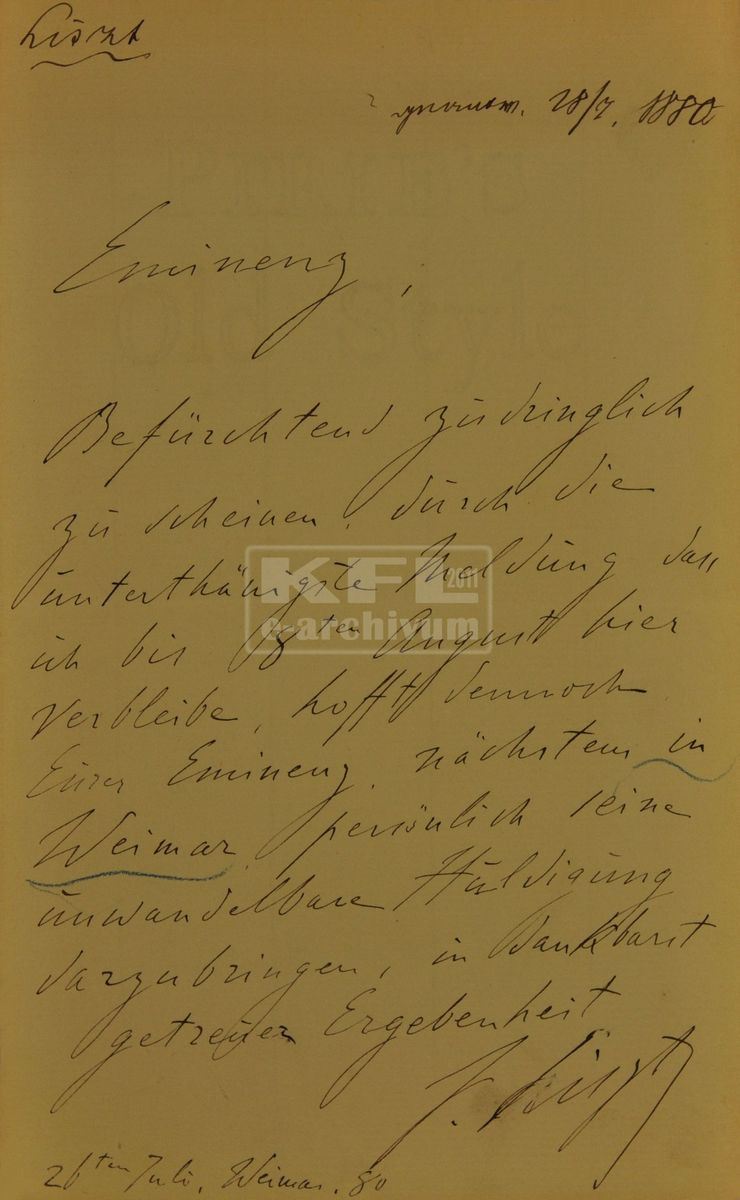 Liszt
28/7. 1880
Eminenz,
Befürchtend zudringlich
zu scheinen, durch die
unterthänigste Meldung dass
ich bis 8ten August hier
verbleibe, hofft dennoch
Eurer Eminenz, nächstens in
Weimar, persönlich seine
unwandelbare Huldigung
darzubringen, in Dankbarst
getreuer Ergebenheit
F. Liszt
26ten Juli, Weimar. 80
KFL 2011
e-archivum
PIRIE'S
Old Style